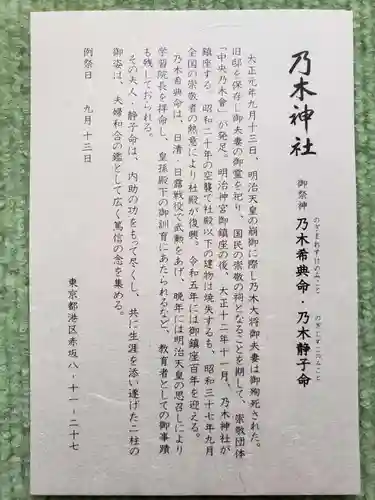 乃木神社
御祭神
のぎまれすけのみこと
乃木希典命・乃木静子命
のぎしずこのみこと
大正元年九月十三日、明治天皇の崩御に際し乃木大将御夫妻は御殉死された。
旧邸を保存し御夫妻の御霊を祀り、国民の崇敬の祠となることを期して、崇敬団体
「中央乃木會」が発足。明治神宮御鎮座の後、大正十二年十一月、乃木神社が
鎮座する。昭和二十年の空襲で社殿以下の建物は焼失するも、昭和三十七年九月
全国の崇敬者の熱意により社殿が復興。令和五年には御鎮座百年を迎える。
乃木希典命は、日清・日露戦役で武勲をあげ、晩年には明治天皇の思召しにより
学習院長を拝命し、皇孫殿下の御訓育にあたられるなど、教育者としての御事蹟
も残しておられる。
その夫人・静子命は、内助の功をもって尽くし、共に生涯を添い遂げた二柱の
御姿は、夫婦和合の鑑として広く篤信の念を集める。
例祭日　九月十三日
東京都港区赤坂八‐十一‐二十七